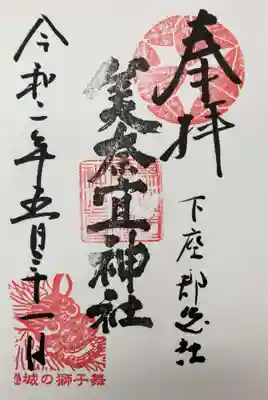 奉拝
下座郡惣社
美奈宜神社
令和二年五月三十一日
城の獅子舞